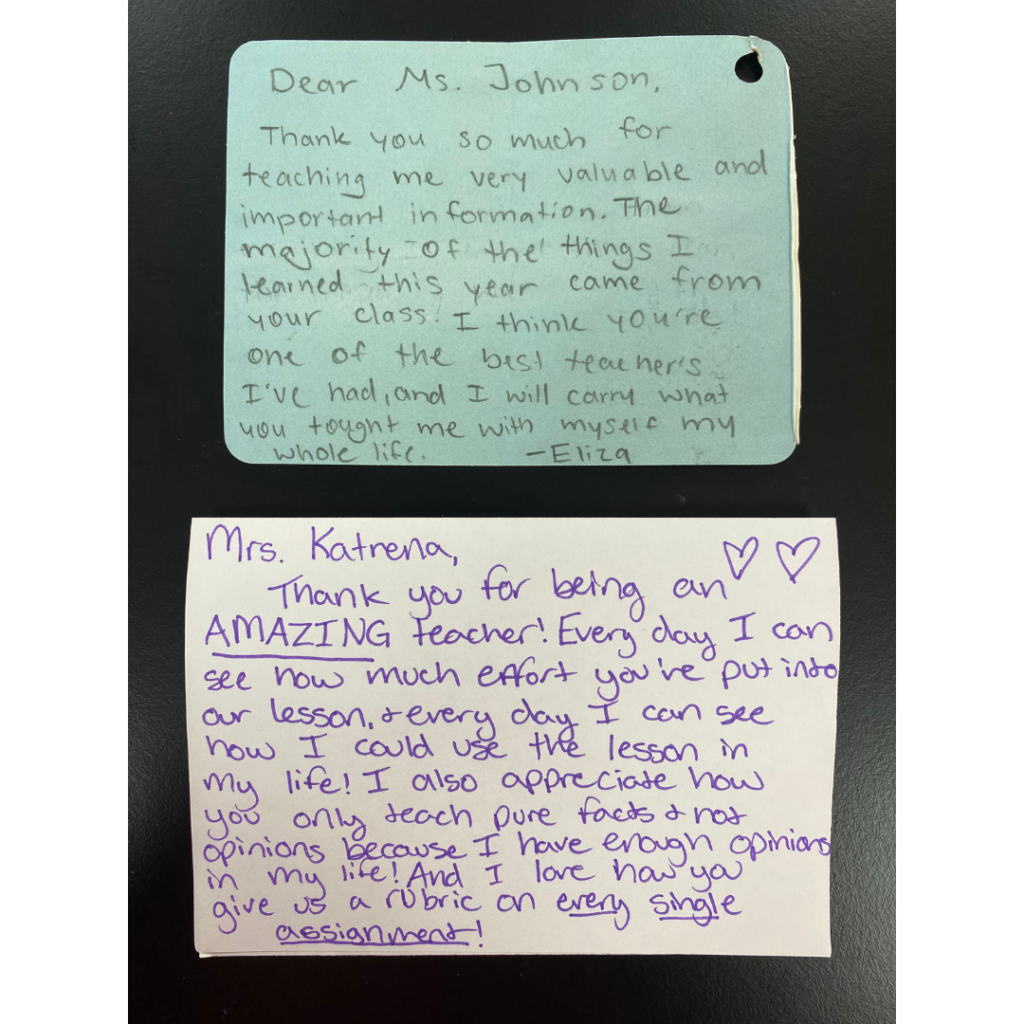 Dear Ms. Johnson,
Thank you so much for
teaching me very valuable and
important information. The
majority of the things I
learned this year came from
your class! I think you're
one of the best teacher's
I've had, and I will carry what
you tought me with myself my
whole life. -Eliza
Mrs. Katrena,
Thank you for being an
AMAZING teacher! Every day I can
see how much effort you've put into
our lesson, & every day I can see
how I could use the lesson in
my life! I also appreciate how
you only teach pure facts & not
opinions because I have enough opinions
in my life! And I love how you
give us a rubric on every single
assignment!